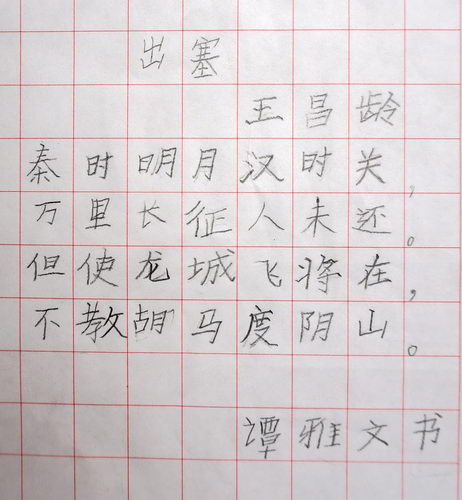 出塞
王昌龄
秦时明月汉时关，
万里长征人未还。
但使龙城飞将在，
不教胡马度阴山。
谭雅文书